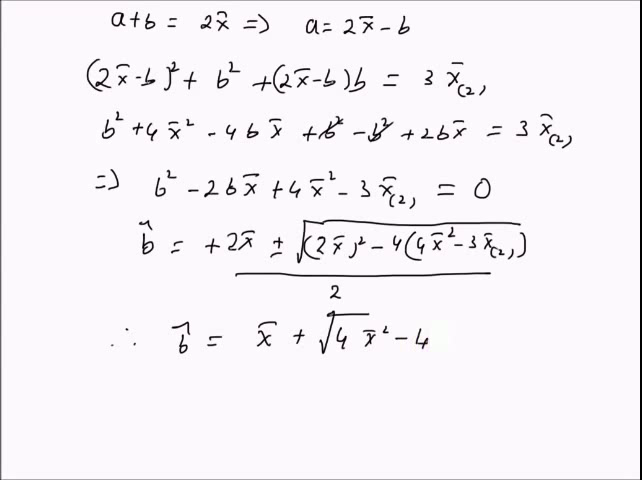 a+b = 2x̄ => a= 2x̄ - b
(2x̄-b)² + b² +(2x̄-b)b = 3 x̄₍₂₎
b² +4x̄² - 4b x̄ +b² -b² +2bx̄ = 3 x̄₍₂₎
=> b² - 2bx̄ +4x̄² - 3x̄₍₂₎ = 0
b̂ = +2x̄ ± √((2x̄)² - 4(4x̄² - 3x̄₍₂₎))
2
∴ b̂ = x̄ + √4 x̄² - 4